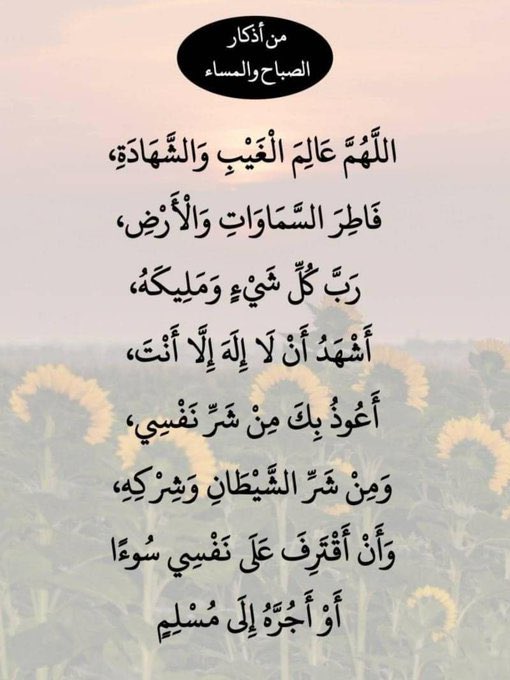 من أذكار
الصباح والمساء
اللَّهُمَّ عَالِمَ الْغَيْبِ وَالشَّهَادَةِ،
فَاطِرَ السَّمَاوَاتِ وَالْأَرْضِ،
رَبَّ كُلِّ شَيْءٍ وَمَلِيكَهُ،
أَشْهَدُ أَنْ لَا إِلَهَ إِلَّا أَنْتَ،
أَعُوذُ بِكَ مِنْ شَرِّ نَفْسِي،
وَمِنْ شَرِّ الشَّيْطَانِ وَشِرْكِهِ،
وَأَنْ أَقْتَرِفَ عَلَى نَفْسِي سُوءًا
أَوْ أَجُرَّهُ إِلَى مُسْلِمٍ